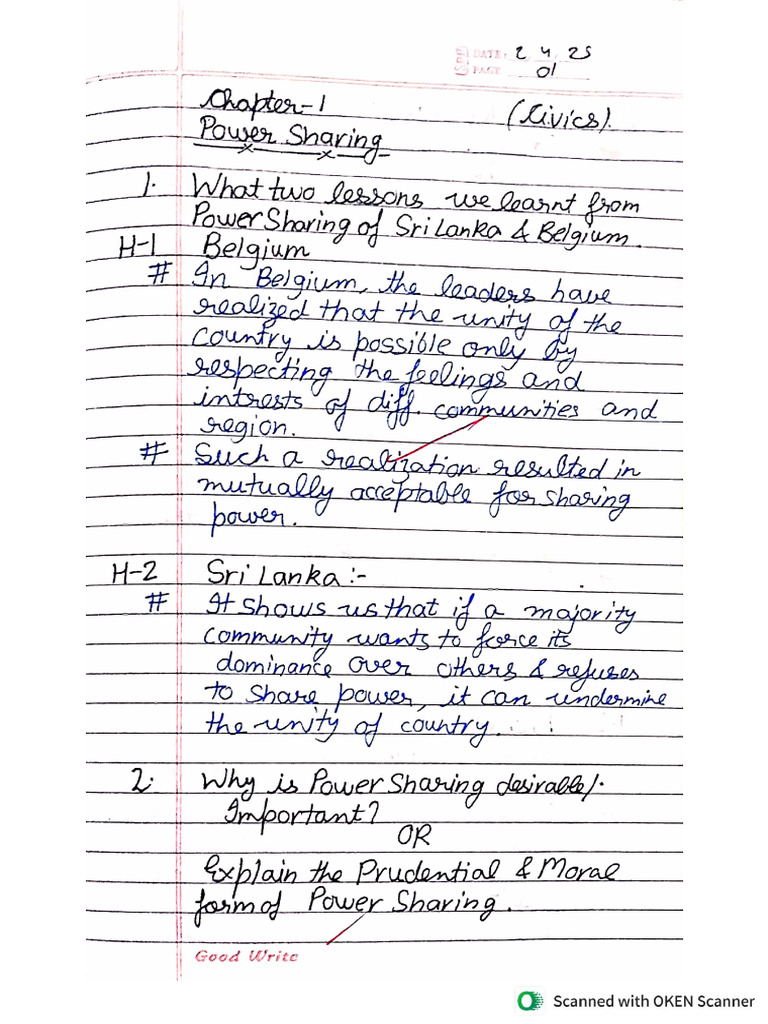 DATE: 2 4 25
PAGE 01
Chapter-1 (Civics).
Power Sharing
1. What two lessons we learnt from
Power Sharing of Sri Lanka & Belgium.
H-1 Belgium
# In Belgium, the leaders have
realized that the unity of the
country is possible only by
respecting the feelings and
intrests of diff. communities and
region.
# Such a realization resulted in
mutually acceptable for sharing
power.
H-2 Sri Lanka :-
# It shows us that if a majority
community wants to force its
dominance over others & refuses
to share power, it can undermine
the unity of country.
2. Why is Power Sharing desirable/.
Important?
OR
Explain the Prudential & Moral
form of Power Sharing.
Good Write
Scanned with OKEN Scanner